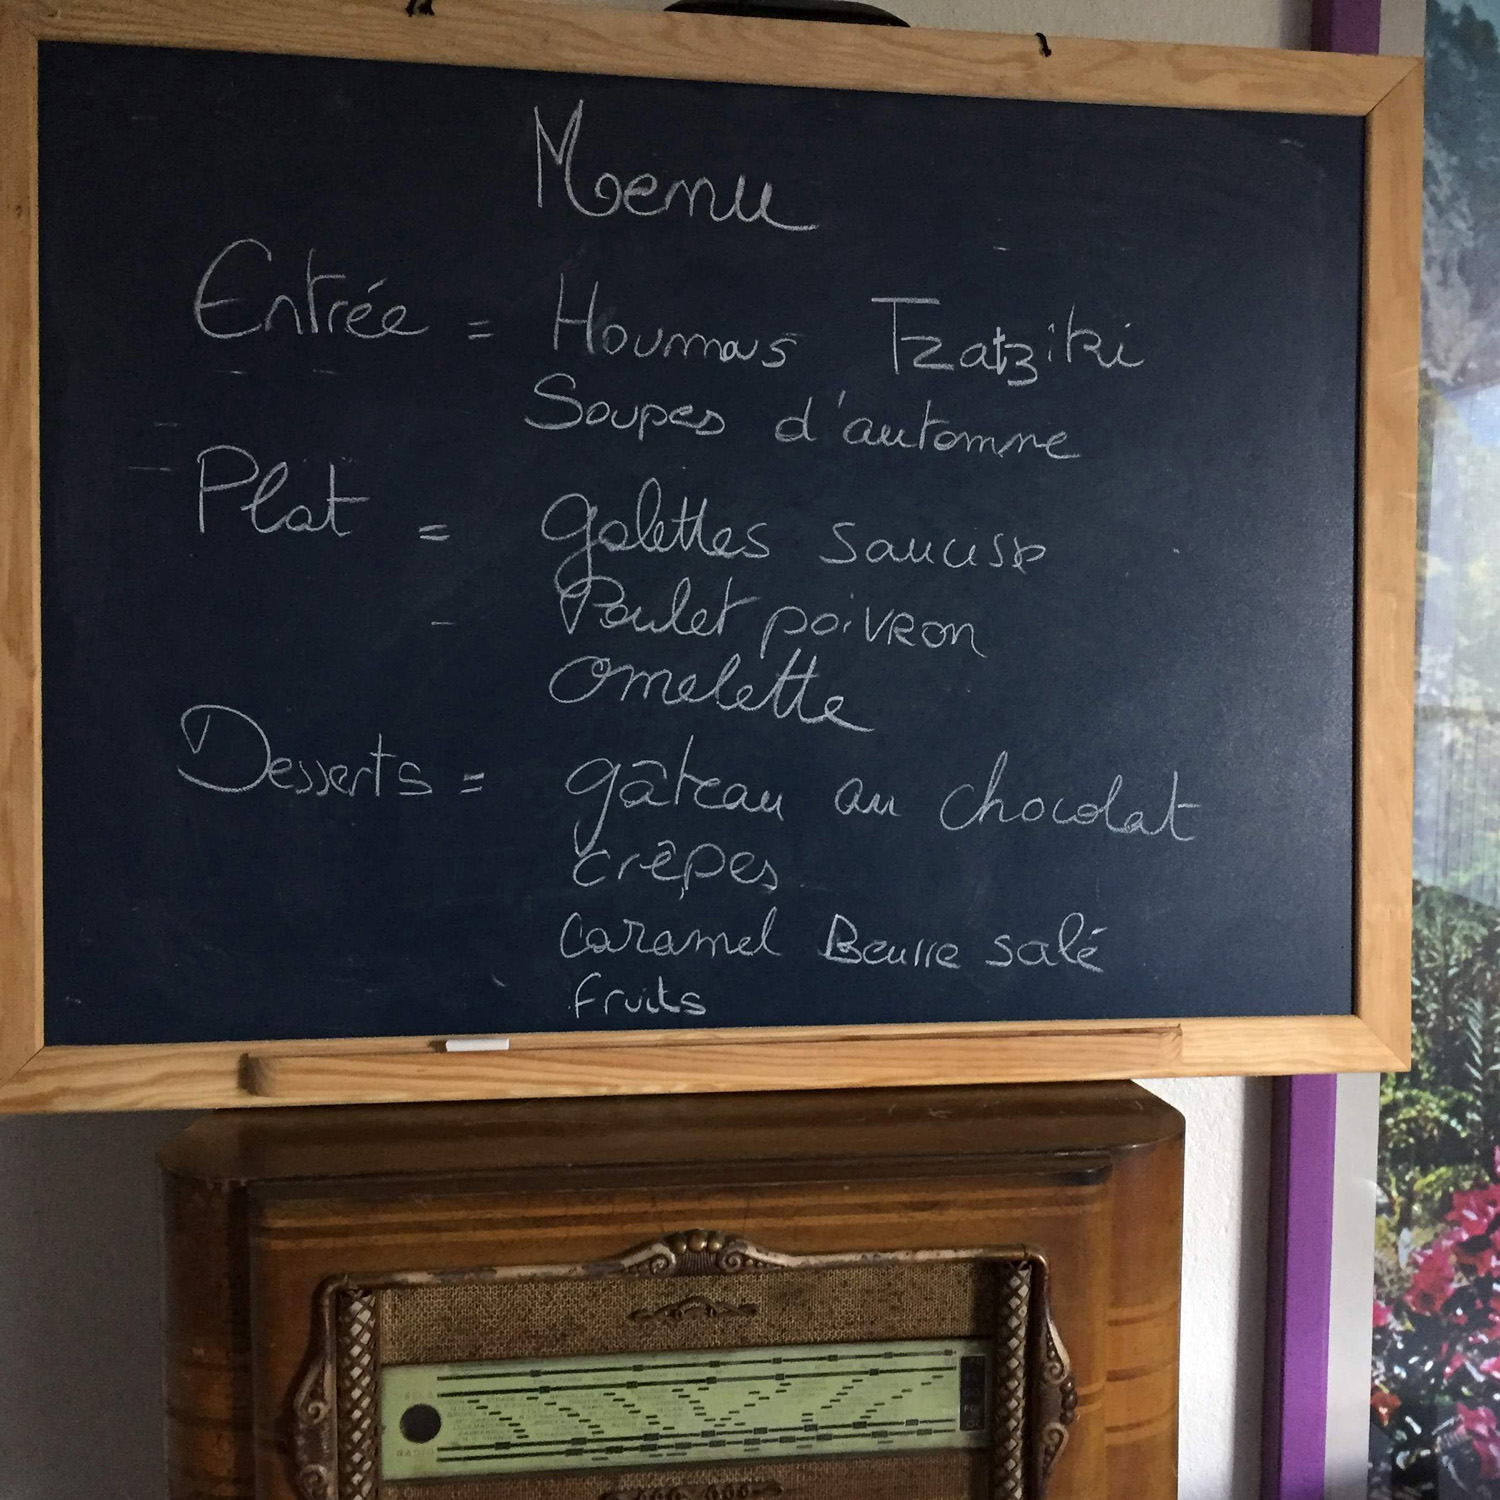 Menu
Entrée = Houmous Tzatziki
Soupes d'automne
Plat = galettes saucisse
Poulet poivron
omelette
Desserts = gâteau au chocolat
crêpes
caramel Beurre salé
fruits